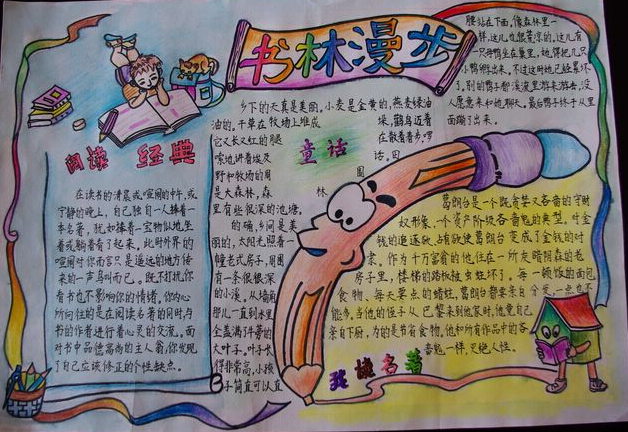 书林漫步
阅读 经典
在读书的清晨或喧闹的中午,或
宁静的晚上,自己独自一人捧着一
本名著,犹如捧着一宝物似地,坐
着或躺着看了起来,此时外界的
喧闹对你而言只是遥远的地方传
来的一声鸟叫而已。既不打扰你
看书也不影响你的情绪,你内心
所向往的是在阅读名著的同时,与
书的作者进行着心灵的交流,面
对书中品德高尚的主人翁,你发现
了自己应该修正的个性缺点。
童话
乡下的天真是美丽。小麦是金黄的,燕麦绿油
油的。干草在牧场上堆成垛,鹳鸟迈着
它又长又红的腿在散着步,啰
嗦地讲着埃及话。田
野和牧场的周围
是大森林,森林
里有些很深的池塘。
的确,乡间是美
丽的,太阳光照着一
幢老式房子,周围
有一条很深
的小溪。从墙角
那儿一直到水里
全盖满牛蒡的
大叶子。叶子长
得非常高,小孩
子简直可以直
腰站在下面,像森林里一
样,这儿也很荒凉的。这儿有
一只母鸭坐在巢里,她得把几只
小鸭孵出来。不过这时她已经累坏
了。别的鸭子都在溪流里游来游去,没
人愿意来和她聊天。最后鸭子终于从里
面蹦了出来。
葛朗台是一个既贪婪又吝啬的守财
奴形象,一个资产阶级吝啬鬼的典型。对金
钱的追逐欲、占有欲使葛朗台变成了金钱的对
象,作为千万富翁的他,住在一所灰暗阴森的老
房子里,楼梯的踏板被虫蛀坏了。每一顿饭的面包
食物,每天要点的蜡蛀,葛朗台都要亲自分发一点也不
能多,当他的侄子从巴黎来到他家时,他竟自己
亲自下厨,为的是节省食物,他和所有作品中的吝
啬鬼一样,灭绝人性。
我读名著